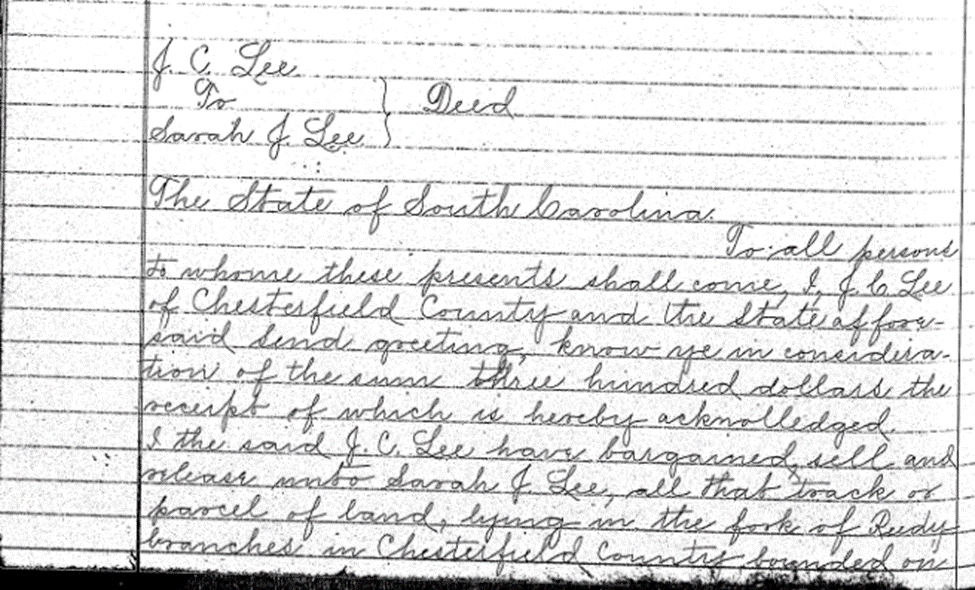 J. C. Lee
To } Deed
Sarah J. Lee }
The State of South Carolina.
To all persons
to whome these presents shall come, I, J. C Lee
of Chesterfield County and the State affore-
said Send greeting, know ye in considera-
tion of the sum three hundred dollars the
receipt of which is hereby acknolledged.
I the said J. C. Lee have bargained, sell and
release unto Sarah J. Lee, all that track or
parcel of land, lying in the fork of Reedy
branches in Chesterfield County bounded on